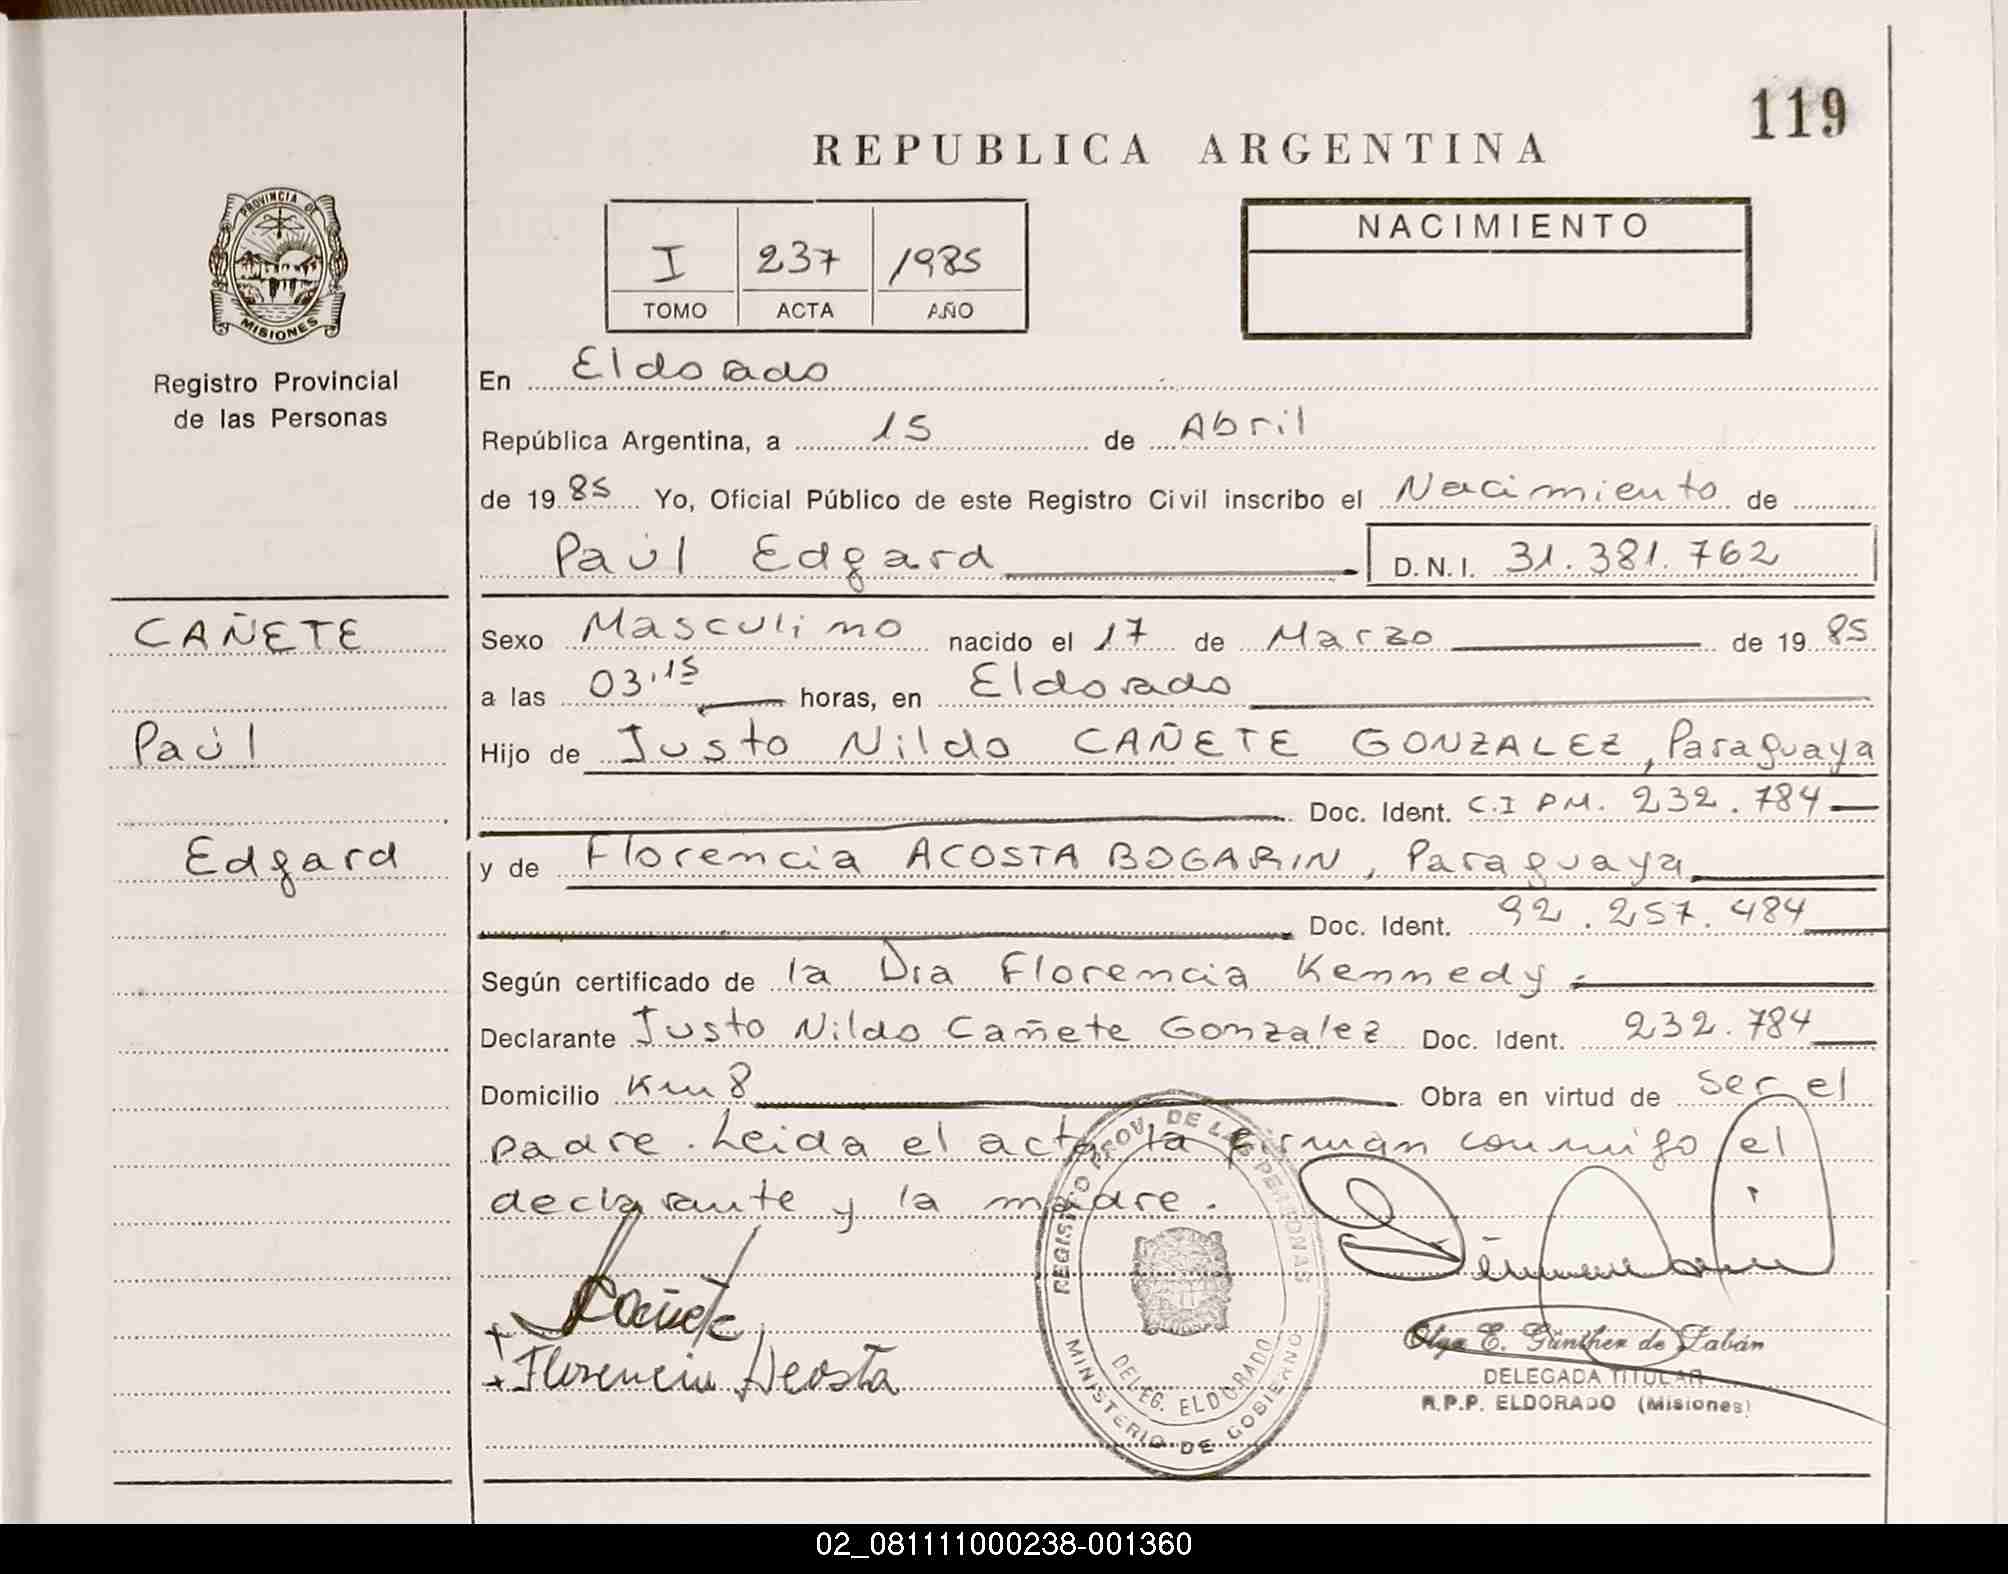 119
REPUBLICA ARGENTINA
PROVINCIA DE
MISIONES
Registro Provincial
de las Personas
I 237 1985
TOMO ACTA AÑO
NACIMIENTO
En Eldorado
República Argentina, a 15 de Abril
de 1985 Yo, Oficial Público de este Registro Civil inscribo el Nacimiento de
Paúl Edgard D.N.I. 31.381.762
CAÑETE
Paúl
Edgard
Sexo Masculino nacido el 17 de Marzo de 1985
a las 03.15 horas, en Eldorado
Hijo de Justo Nildo CAÑETE GONZALEZ, Paraguaya
Doc. Ident. C.I P.M. 232.784
y de Florencia ACOSTA BOGARIN, Paraguaya
Doc. Ident. 92.257.484
Según certificado de la Dra Florencia Kennedy
Declarante Justo Nildo Cañete Gonzalez Doc. Ident. 232.784
Domicilio Km 8 Obra en virtud de ser el
padre. Leida el acta la firman conmigo el
declarante y la madre.
Cañete
Florencia Acosta
REGISTRO PROV. DE LAS PERSONAS
DELEG. ELDORADO
MINISTERIO DE GOBIERNO
Olga E. Günther de Labán
DELEGADA TITULAR
R.P.P. ELDORADO (Misiones)
02_081111000238-001360